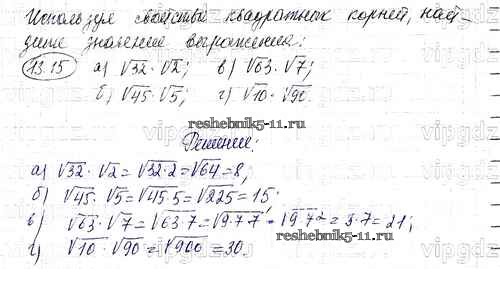 Используя свойства квадратных корней, най-
дите значение выражения:
13.15 а) √32 · √2; в) √63 · √7;
б) √45 · √5; г) √10 · √90.
reshebnik5-11.ru
Решение:
а) √32 · √2 = √32·2 = √64 = 8;
б) √45 · √5 = √45·5 = √225 = 15.
в) √63 · √7 = √63·7 = √9·7·7 = √9·7² = 3·7 = 21;
reshebnik5-11.ru
г) √10 · √90 = √900 = 30.